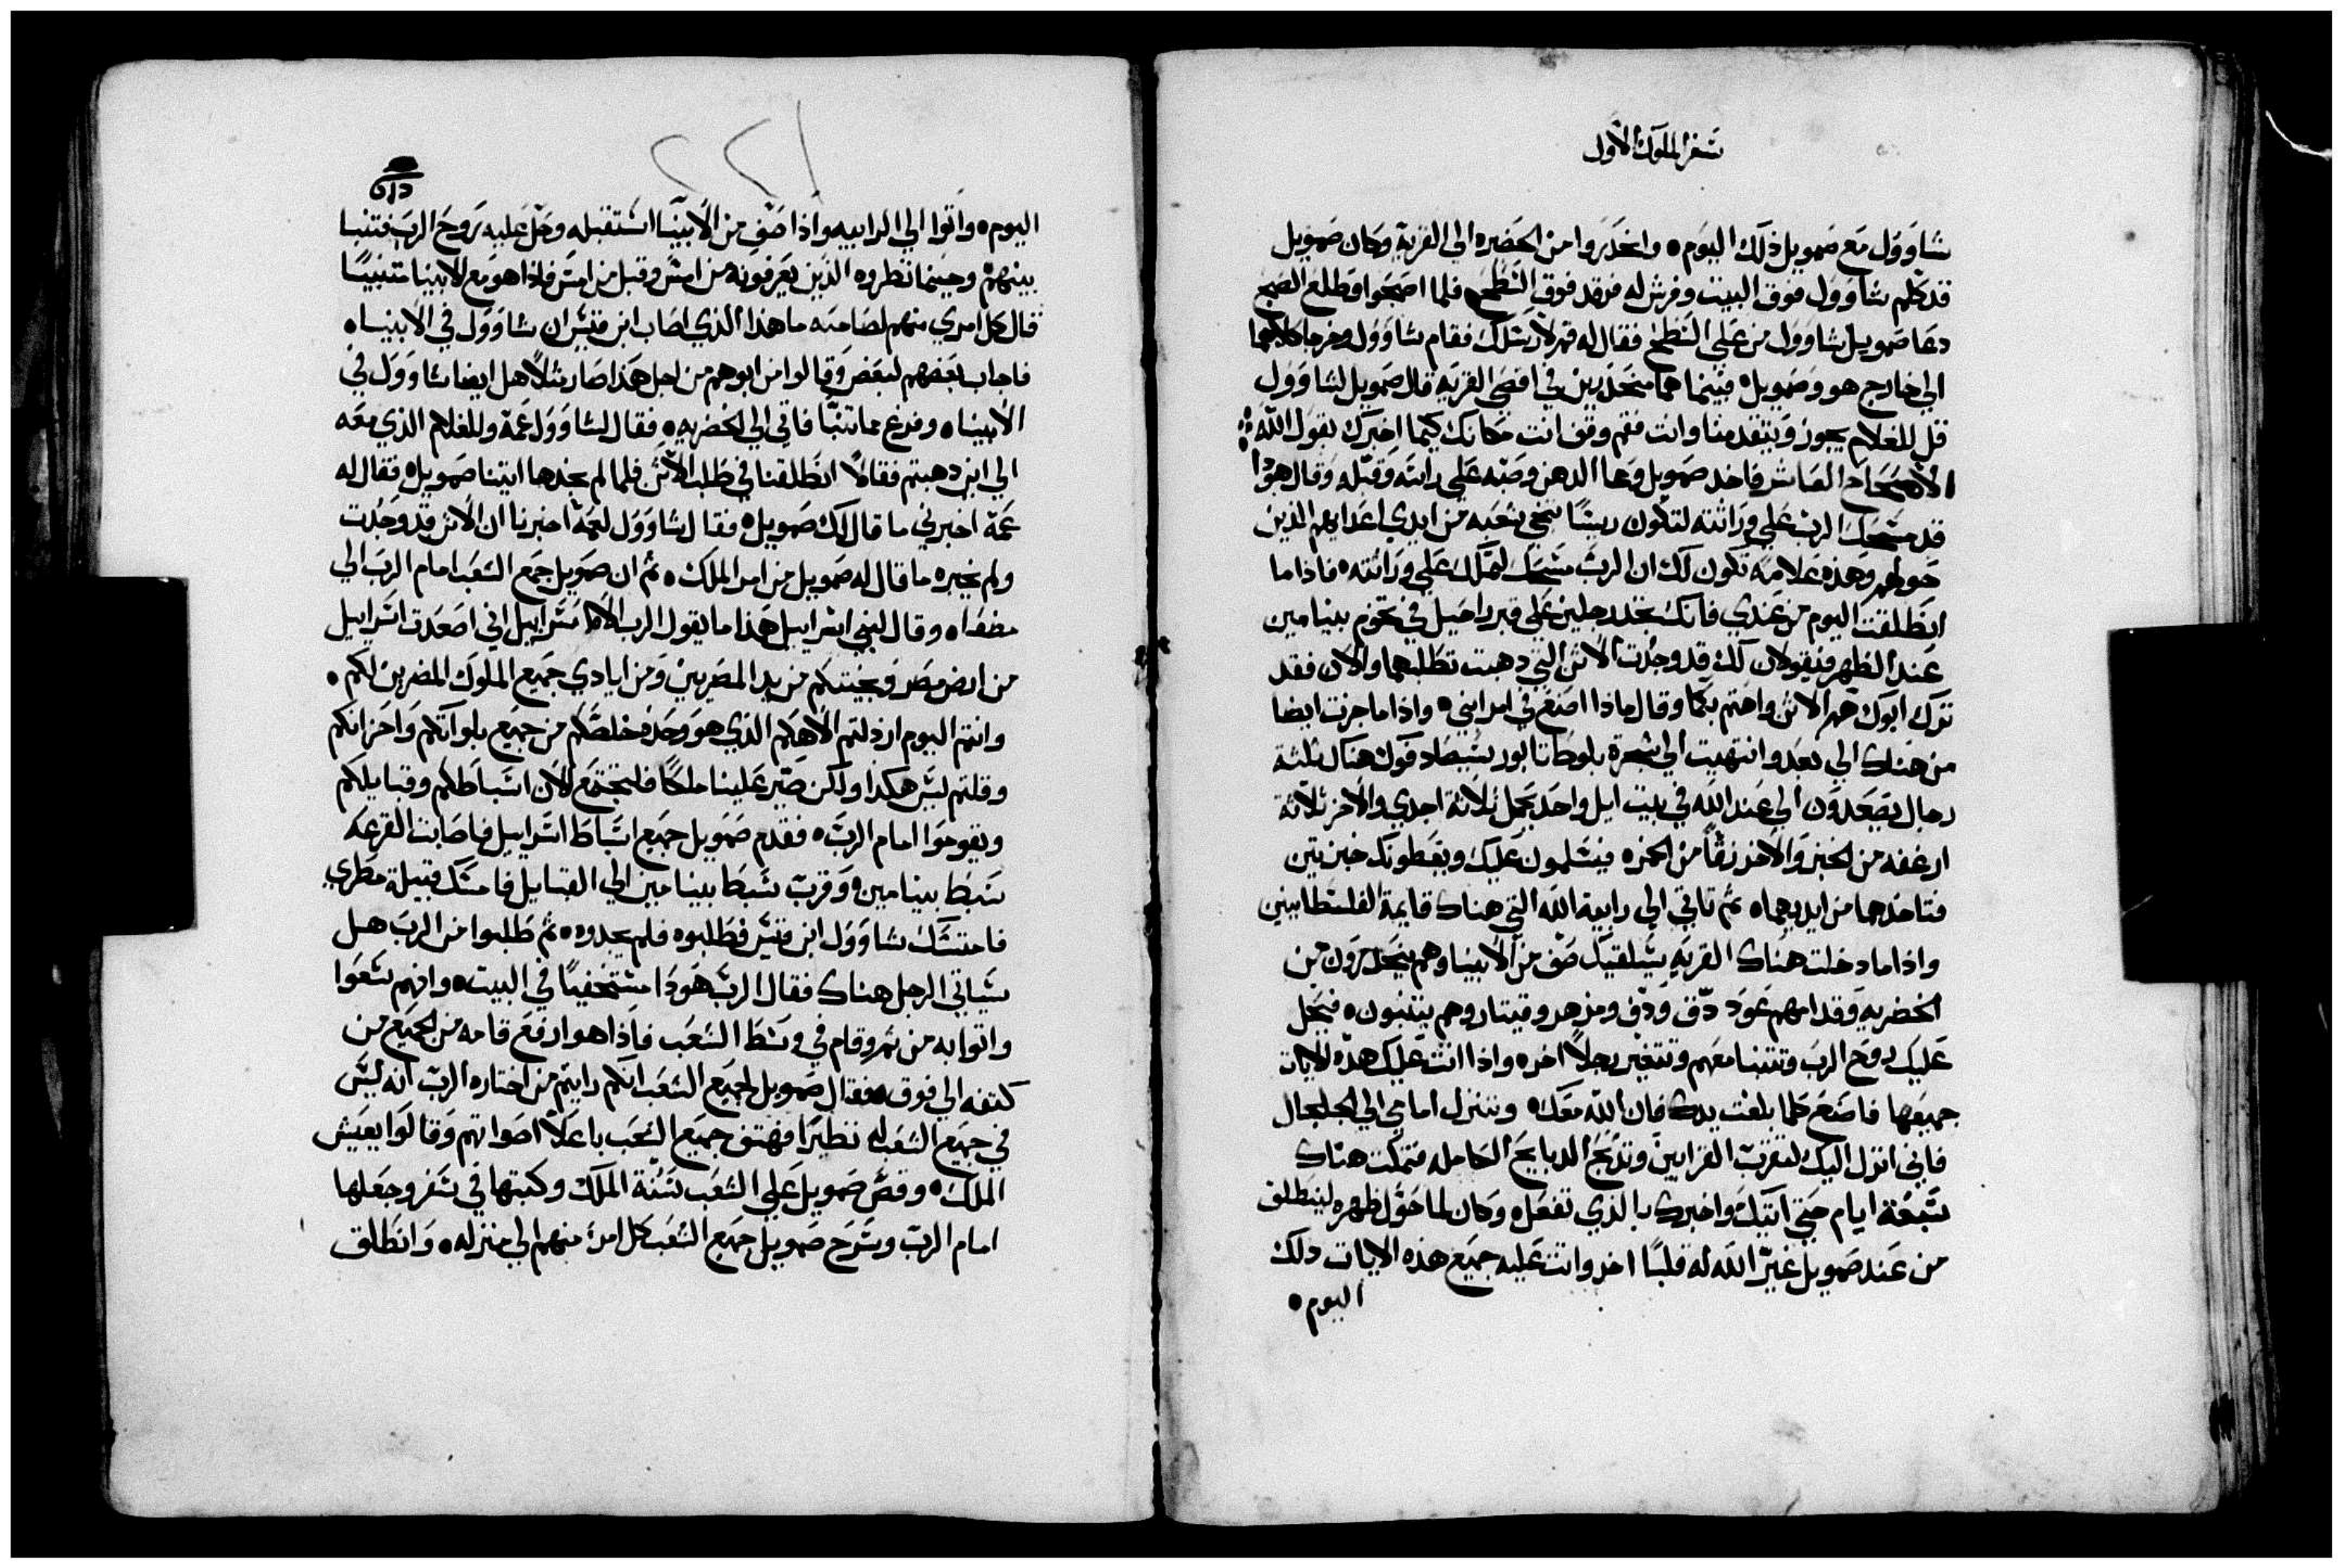 سفر الملوك الاول
شاوول مع صمويل ذلك اليوم ٥ وانحدروا من الحضيره الى القرية وكان صمويل
قد كلم شاوول فوق البيت وفرش له فرقد فوق السطح فلما اصبحوا وطلع الصبح
دعا صمويل شاوول من على السطح فقال له قم لارسلك فقام شاوول وخرجا كلاهما
الي خارج هو وصمويل ٥ فبينما هما منحدرين في اقصي القريه قال صمويل لشاوول
قل للغلام يجوز ويتقدمنا وانت فقم وقف انت مكانك كيما اخبرك بقول الله
الاصحاح العاشر فاخد صمويل وعا الدهن وصبه علي راسه وقبله وقال هودا
قد مسحك الرب علي وراثته لتكون ريسًا تنجي شعبه من ايدي اعدايهم الذين
حولهم وهذه علامة تكون لك ان الرب مسحك لتملك علي وراثته ٥ فاذا ما
انطلقت اليوم من عندي فانك تجد رجلين علي قبر راحيل في تخوم بنيامين
عند الظهر فيقولان لك قد وجدت الاتن التي دهبت تطلبهما والان فقد
ترك ابوك هم الاتن واهتم بكما وقال ماذا اصنع في امر ابني ٥ واذا ما جزت ايضا
من هناك الي بعد وانتهيت الي شجرة بلوطة تابور سيصادفوك هناك ثلثة
رجال يصعدون الي عند الله في بيت ايل واحد يحمل ثلاثة اجدي والاخر ثلاثة
ارغفه من الخبز والاخر زقًا من الخمره فيسلمون عليك ويعطونك خبزتين
فتاخدهما من ايديهما ٥ ثم تاتي الي رابية الله التي هناك قايمة الفلسطانيين
واذا ما دخلت هناك القريه سيلقيك صف من الانبيا وهم ينحدرون من
الحضريه وقدامهم عود دق ودف ومزهر وقيتار وهم يتنبون ٥ فيحل
عليك روح الرب وتتنبا معهم وتتغير رجلاً اخره واذا اتت عليك هذه الايات
جميعها فاصنع كلما بلغت يدك فان الله معك ٥ وتنزل امامي الي الجلجال
فاني انزل اليك لتقرب القرابين وتذبح الدبايح الكامله فتمكث هناك
سبعة ايام حتي اتيك واخبرك بالذي تفعل ٥ وكان لما حول ظهره لينطلق
من عند صمويل غير الله له قلبًا اخر واتت عليه جميع هذه الايات دلك
اليوم ٥
٢٢١
اليوم ٥ واتوا الي الرابيه واذا صف من الانبيا استقبله وحل عليه روح الرب فتنبا
بينهم وحينما نظروه الذين يعرفونه من امس وقبل من امس فاذا هو مع الانبيا متنبيًا
قال كل امري منهم لصاحبه ما هذا الذي اصاب ابن قيس ان شاوول في الانبيا ٥
فاجاب بعضهم لبعض وقالوا من ابوهم من اجل هذا صار مثلاً هل ايضا شاوول في
الانبيا ٥ وفرغ مما تنبا فاتي الي الحضريه ٥ فقال لشاوول عمه وللغلام الذي معه
الي اين دهبتم فقالا انطلقنا في طلب الاتن فلما لم نجدها اتينا صمويل ٥ فقال له
عمه اخبرني ما قال لك صمويل ٥ فقال شاوول لعمه اخبرنا ان الاتن قد وجدت
ولم يخبره ما قال له صمويل من امر الملك ٥ ثم ان صمويل جمع الشعب امام الرب الي
مصفاه وقال لبني اسراييل هذا ما يقول الرب الاه اسراييل اني اصعدت اسراييل
من ارض مصر ونجيتكم من يد المصريين ومن ايادي جميع الملوك المضرين لكم ٥
وانتم اليوم ارذلتم الاهكم الذي هو وحده خلصكم من جميع بلواتكم واحزانكم
وقلتم ليس هكذا ولكن صير علينا ملكًا فلتجتمع الان اسباطكم وقبايلكم
ويقوموا امام الرب ٥ فقدم صمويل جميع اسباط اسراييل فاصابت القرعه
سبط بنيامين ٥ وقرب سبط بنيامين الي القبايل فامسك قبيلة مطري
فامتسك شاوول ابن قيس فطلبوه فلم يجدوه ٥ ثم طلبوا من الرب هل
سياتي الرجل هناك فقال الرب هودا مستخفيًا في البيت ٥ وانهم سعوا
واتوا به من ثم وقام في وسط الشعب فاذا هو ارفع قامه من الجميع من
كتفه الي فوق ٥ فقال صمويل لجميع الشعب انكم رايتم من اختاره الرب انه ليس
في جميع الشعب له نظيرا فهتف جميع الشعب باعلا اصواتهم وقالوا يعيش
الملك ٥ وقص صمويل علي الشعب سنة الملك وكتبها في سفر وجعلها
امام الرب وسرح صمويل جميع الشعب كل امرء منهم الي منزله ٥ وانطلق